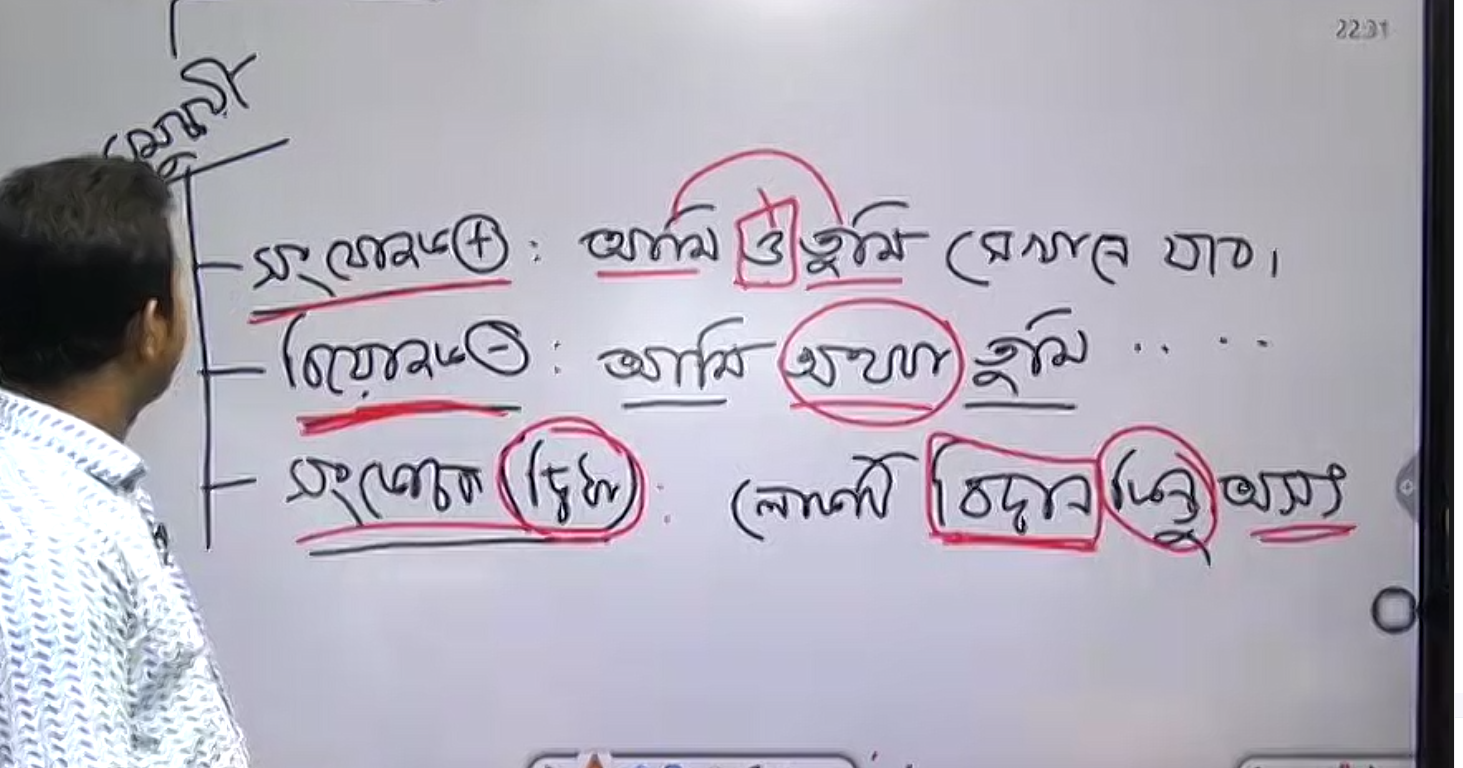 22:31
সমুচ্চয়ী
সংযোজক (+) : আমি ও তুমি সেখানে যাব।
বিয়োজক (-) : আমি অথবা তুমি .. ..
সংকোচক (দ্বিধা) : লোকটি বিদ্বান কিন্তু অসৎ